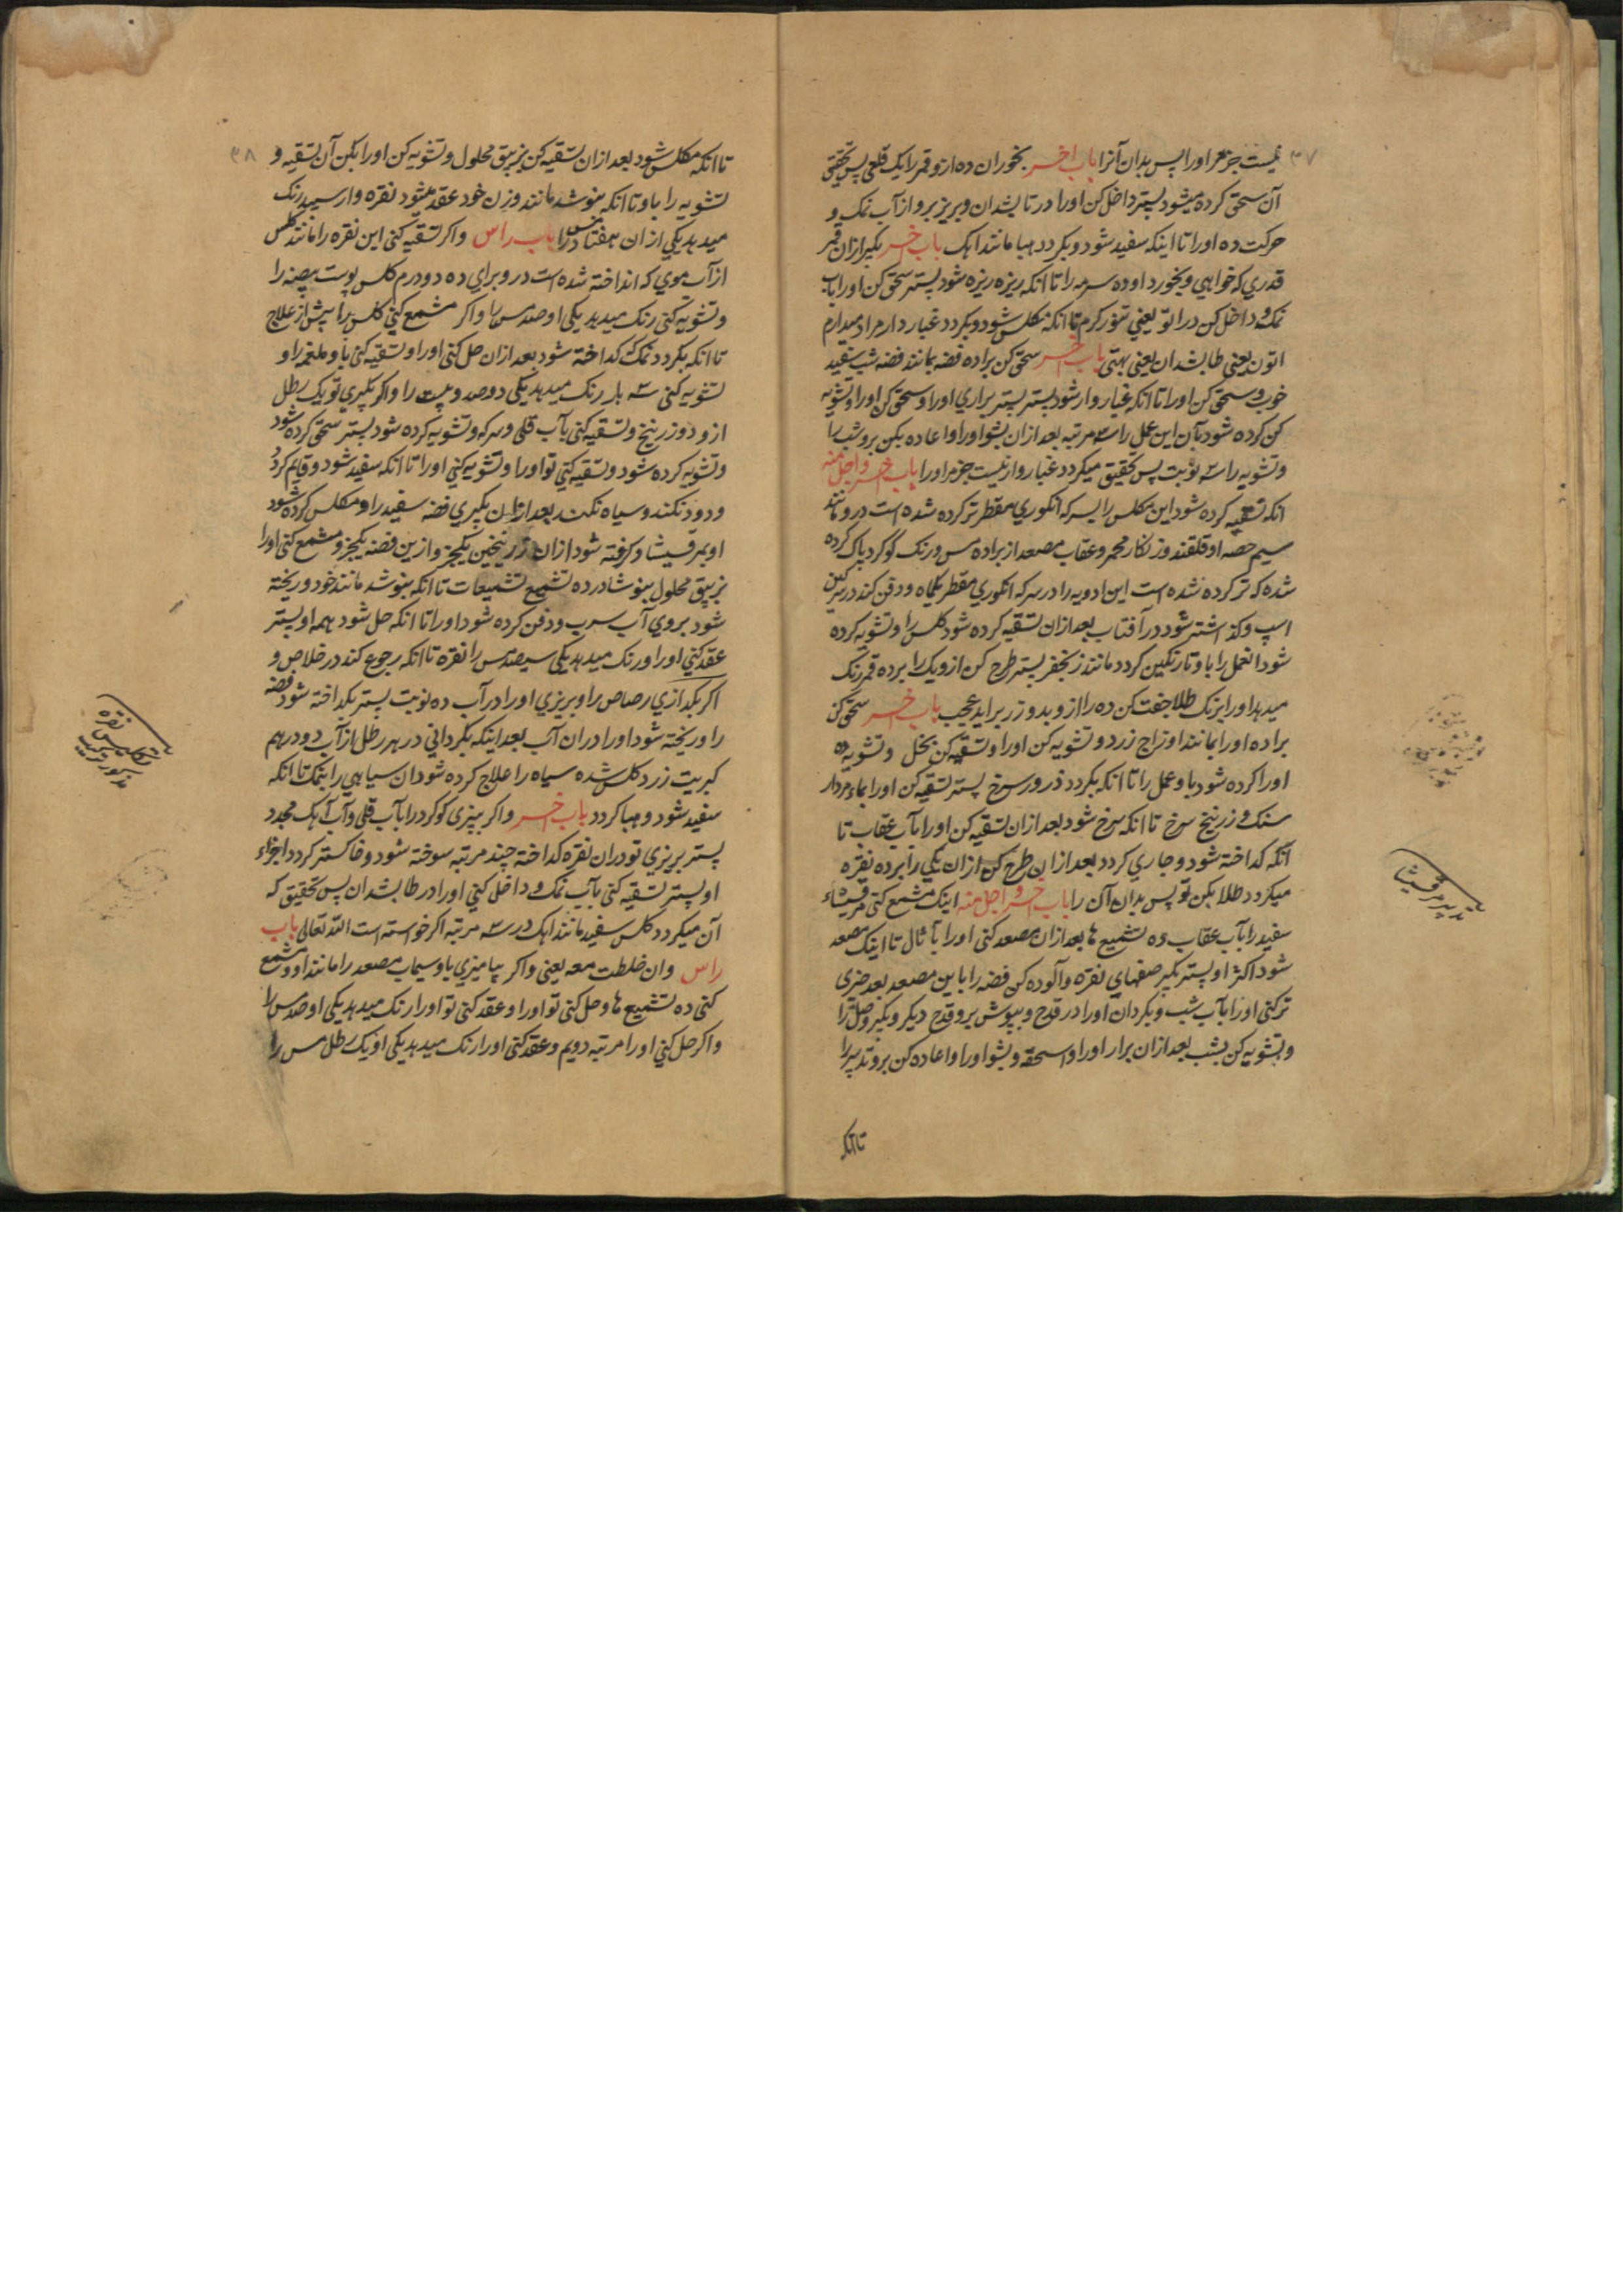 ۳۷
نیست جزمر اورا پس بدان آنرا باب اخر بخوران ده ازو قمر را یک قلعی پس تحقیق
آن سحق کرده میشود پستر داخل کن اورا در تابشدان و بریز برو از آب نمک و
حرکت ده اورا تا اینکه سفید شود و بکردد هبا مانند اهک باب اخر بکیر ازان قمر
قدری که خواهی و بخورد او ده سرمه را تا انکه ریزه ریزه شود پستر سحق کن اورا باب
نمک و داخل کن در اتو یعنی تنور کرم تا انکه مکلس شود و بکردد غبار دار مراد میدارم
اتون یعنی طابشدان یعنی بهتی باب اخر سحق کن براده فضه بمانند فضه شب سفید
خوب و سحق کن اورا تا انکه غبار وار شود پستر پستر براری اورا و سحق کن اورا و تشویه
کن کرده شود بآن این عمل را سه مرتبه بعد ازان بشو اورا و اعاده بکن برو شب را
و تشویه را سه نوبت پس تحقیق میکردد غبار وار نیست جزمر اورا باب اخر و اجل منه
انکه تسقیه کرده شود این مکلس را بسرکه انکوری مقطر تر کرده شده است درو مانند
سیم حصه او قلقند و زنکار محمر و عقاب مصعد از براده مس و رنک کوکرد پاک کرده
شده که تر کرده نشده است این ادویه را در سرکه انکوری مقطر یکماه و دفن کند در سرکین
اسپ و کذاشته شود در آفتاب بعد ازان تسقیه کرده شود کلس را و تشویه کرده
شود انعمل را باو تا رنکین کردد مانند زنجفر پستر طرح کن ازو یک را بر ده قمر رنک
میدهد اورا برنک طلا جفت کن ده را ازو بدو زر براید عجیب باب اخر سحق کن
براده اورا بمانند او زاج زرد و تشویه کن اورا و تسقیه کن بخل و تشویه ده
اورا کرده شود باو عمل را تا انکه بکردد ذرور سرخ پستر تسقیه کن اورا بماء مردار
سنک و زرنیخ سرخ تا انکه سرخ شود بعد ازان تسقیه کن اورا بآب عقاب تا
انکه کداخته شود و جاری کردد بعد ازان طرح کن ازان یکی را بر ده نقره
میکردد طلا بکن تو پس بدان آن را باب اخر و اجل منه اینک مشمع کنی مرقشیشاء
سفید را بآب عقاب ده تشمیع ها بعد ازان مصعد کنی اورا بآثال تا اینک مصعد
شود اکثر او پستر بکیر صفهای نقره و آلوده کن فضه را باین مصعد بعد ضری
ترکنی اورا بآب شب و بکردان اورا در قدح و بپوش برو قدح دیکر و بکیر وصل را
و تشویه کن بشب بعد ازان برار اورا و اسحقه و بشو اورا و اعاده کن برو تدبیر را
تا انکه
تدبیر مرقشیشا
۳۸
تا انکه مکلس شود بعد ازان تسقیه کن بزیبق محلول و تشویه کن اورا بکن آن تسقیه و
تشویه را باو تا انکه بنوشد مانند وزن خود عقد میشود نقره وار سپید رنک
میدهد یکی ازان هفتاد مس را باب راس و اکر تسقیه کنی این نقره را مانند کلس
از آب موی که انداخته شده است درو برای ده دو درم کلس پوست بیضه را
و تشویه کنی رنک میدهد یکی او صد مس را و اکر مشمع کنی کلس را پیش از علاج
تا انکه بکردد نمک کداخته شود بعد ازان حل کنی اورا و تسقیه کنی باو ملغمه را و
تشویه کنی سه بار رنک میدهد یکی دوصد و بیست را و اکر بکیری تو یک رطل
ازو و زرنیخ و تسقیه کنی بآب قلی و سرکه و تشویه کرده شود پستر سحق کرده شود
و تشویه کرده شود و تسقیه کنی تو اورا و تشویه کنی اورا تا انکه سفید شود و قایم کردد
و دود نکند و سیاه نکند بعد ازان بکیری فضه سفید را و مکلس کرده شود
او بمرقشیشا و کرفته شود ازان زرنیخین یکجز و ازین فضه یکجز و مشمع کنی اورا
بزیبق محلول بنوشادر ده تشمیع تشمیعات تا انکه بنوشد مانند خود و ریخته
شود بروی آب سرب و دفن کرده شود اورا تا انکه حل شود همه او پستر
عقد کنی اورا و رنک میدهد یکی سیصد مس را نقره تا انکه رجوع کند در خلاص و
اکر بکدازی رصاص را و بریزی اورا در آب ده نوبت پستر بکداخته شود فضه
را و ریخته شود اورا دران آب بعد اینکه بکردانی در هر رطل از آب دو درهم
کبریت زرد کلس شده سیاه را علاج کرده شود ان سیاهی را بنمک تا انکه
سفید شود و هبا کردد باب اخر و اکر بپزی کوکرد را بآب قلی و آب آهک مجدد
پستر بریزی تو دران نقره کداخته چند مرتبه سوخته شود و خاکستر کردد اجزاء
او پستر تسقیه کنی بآب نمک و داخل کنی اورا در طابشدان پس تحقیق که
آن میکردد کلس سفید مانند اهک در سه مرتبه اکر خواسته است الله تعالی باب
راس وان خلطت معه یعنی و اکر بیامیزی باو سیماب مصعد را مانند او و مشمع
کنی ده تشمیع ها و حل کنی تو اورا و عقد کنی تو اورا رنک میدهد یکی او صد مس را
و اکر حل کنی اورا مرتبه دویم و عقد کنی اورا رنک میدهد یکی او یک رطل مس را
تکلیس نقره